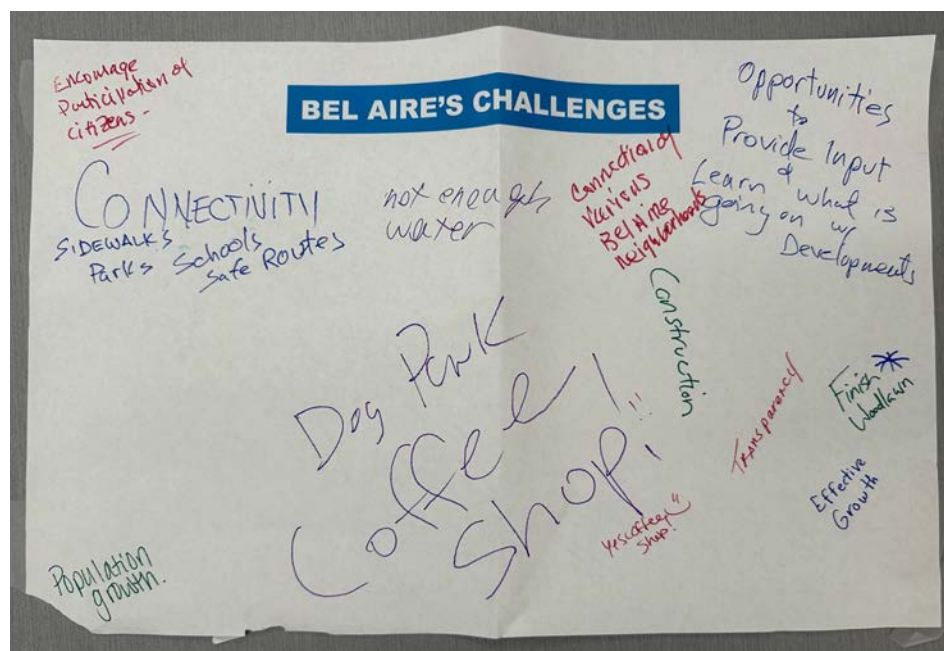 Encourage
Participation of
citizens -
BEL AIRE'S CHALLENGES
Opportunities
to
Provide Input
&
Learn what is
going on w/
Developments
CONNECTIVITY
SIDEWALKS
Parks Schools
Safe Routes
not enough
water
Connection of
various
Bel Aire
neighborhoods
Construction
Dog Park
Coffee
Shop!!!
yes coffee
shop!
Transparency
Finish
Woodlawn
Effective
Growth
Population
growth.